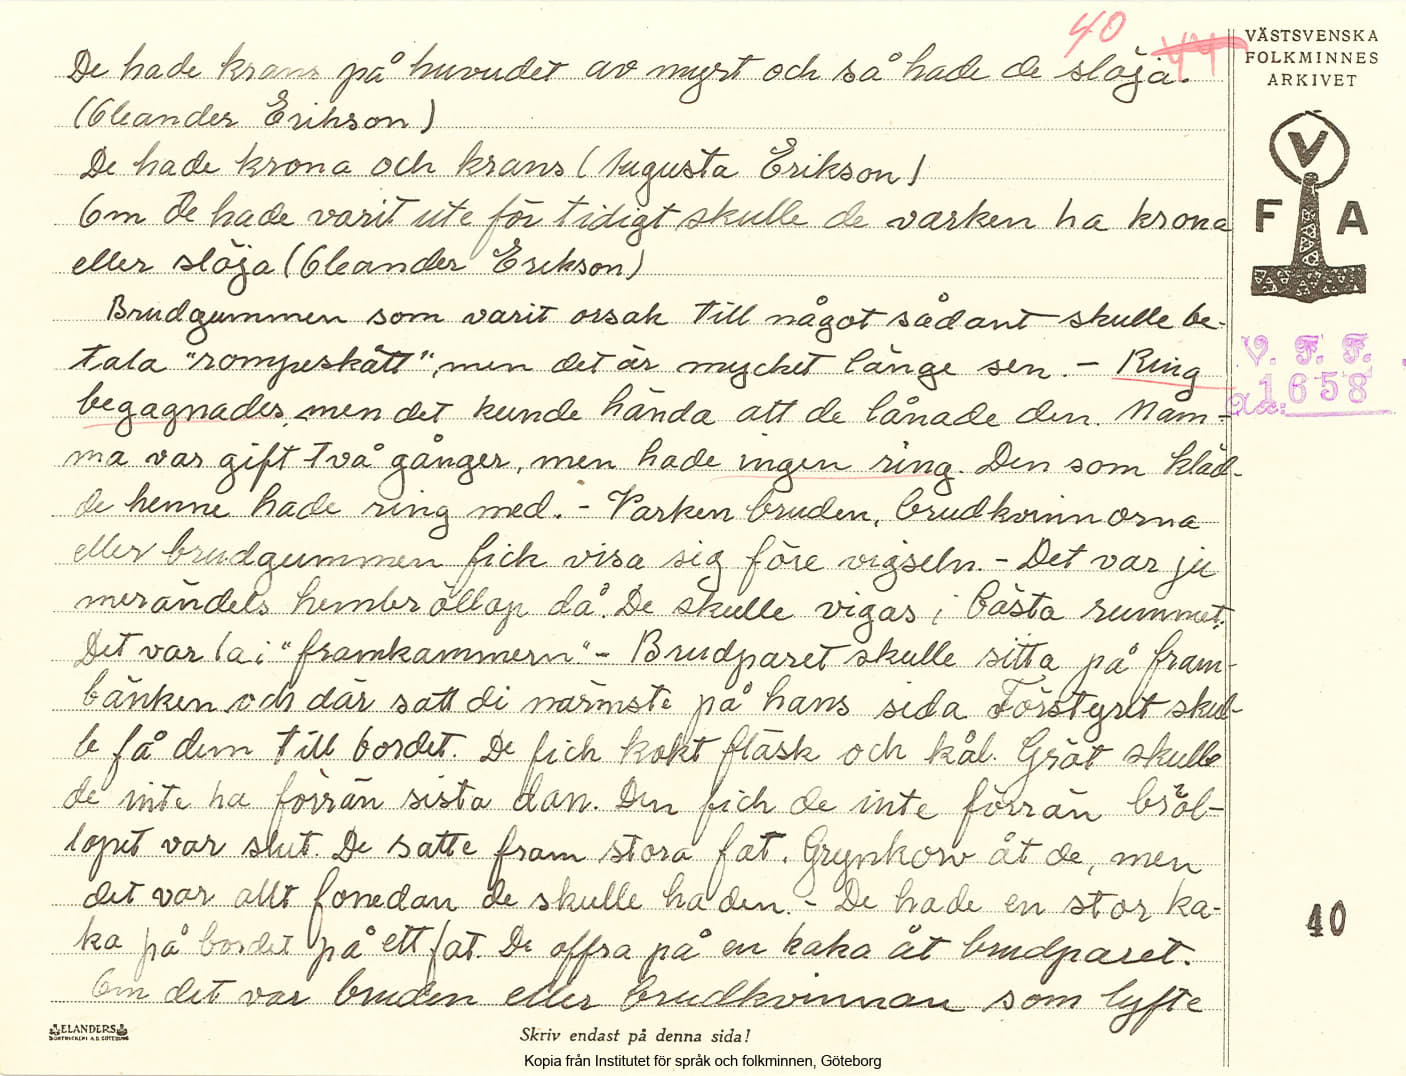 40
VÄSTSVENSKA
FOLKMINNES
ARKIVET
V
F A
V. F. F.
Acc: 1658
De hade krans på huvudet av myrt och så hade de slöja.
(Oleander Erikson)
De hade krona och krans (Augusta Erikson)
Om de hade varit ute för tidigt skulle de varken ha krona
eller slöja (Oleander Erikson)
Brudgummen som varit orsak till något sådant skulle be-
tala "rompeskått", men det är mycket länge sen. – Ring
begagnades, men det kunde hända att de lånade den. Mam-
ma var gift två gånger, men hade ingen ring. Den som kläd-
de henne hade ring med. – Varken bruden, brudkvinnorna
eller brudgummen fick visa sig före vigseln. – Det var ju
merändels hembröllop då. De skulle vigas i bästa rummet.
Det var la i "framkammern" – Brudparet skulle sitta på fram-
bänken och där satt di närmste på hans sida. Förstyrit skul-
le få dem till bordet. De fick kokt fläsk och kål. Gröt skulle
de inte ha förrän sista dan. Den fick de inte förrän bröl-
lopet var slut. De satte fram stora fat. Grynkorv åt de, men
det var allt fonedan de skulle ha den. – De hade en stor ka-
ka på bordet på ett fat. De offra på en kaka åt brudparet.
Om det var bruden eller brudkvinnan som lyfte
40
ELANDERS
BOKTRYCKERI A.B. GÖTEBORG
Skriv endast på denna sida!
Kopia från Institutet för språk och folkminnen, Göteborg